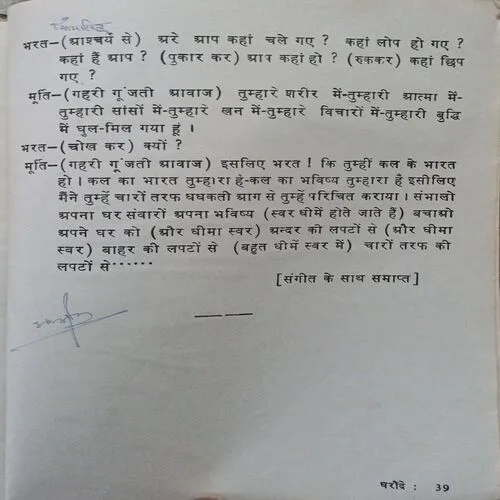 भरत—(आश्चर्य से) अरे आप कहां चले गए ? कहां लोप हो गए ?
कहां हैं आप ? (पुकार कर) आप कहां हो ? (रुककर) कहां छिप
गए ?
मूर्ति—(गहरी गूंजती आवाज) तुम्हारे शरीर में-तुम्हारी आत्मा में-
तुम्हारी सांसों में-तुम्हारे खून में-तुम्हारे विचारों में-तुम्हारी बुद्धि
में घुल-मिल गया हूं ।
भरत—(चीख कर) क्यों ?
मूर्ति—(गहरी गूंजती आवाज) इसलिए भरत ! कि तुम्हीं कल के भारत
हो । कल का भारत तुम्हारा है-कल का भविष्य तुम्हारा है इसीलिए
मैंने तुम्हें चारों तरफ धधकती आग से तुम्हें परिचित कराया । संभालो
अपना घर संवारों अपना भविष्य (स्वर धीमें होते जाते हैं) बचाओ
अपने घर को (और धीमा स्वर) अन्दर की लपटों से (और धीमा
स्वर) बाहर की लपटों से (बहुत धीमें स्वर में) चारों तरफ की
लपटों से······
[संगीत के साथ समाप्त]
घरौंदे : 39